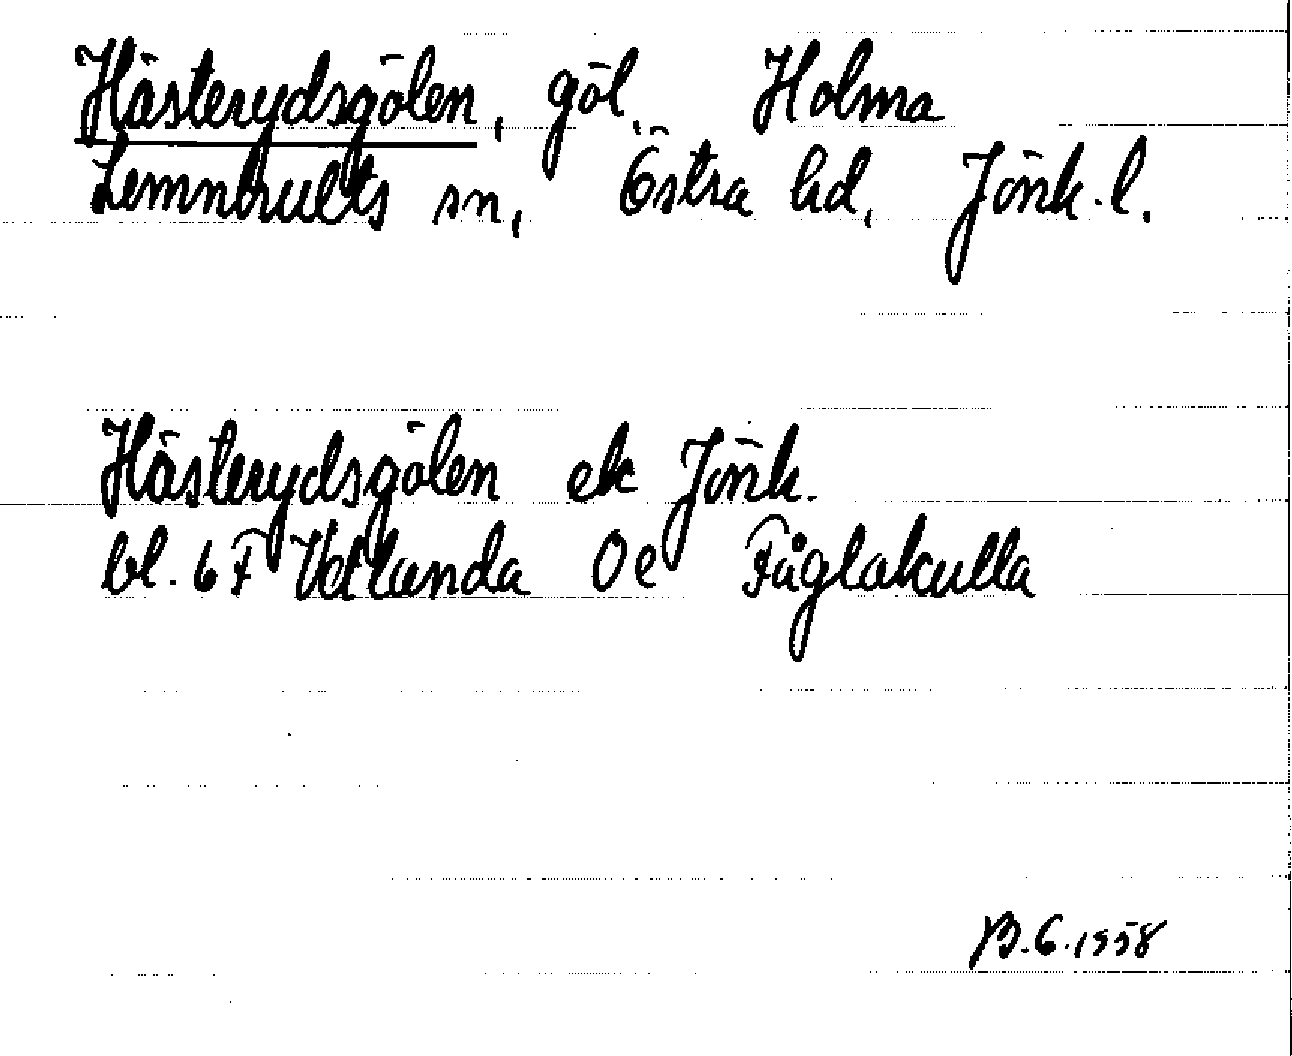 Hästerydsgölen, göl, Holma
Lemnhults sn, Östra hd, Jönk. l.
Hästerydsgölen ek Jönk.
bl. 6 F Vetlanda Oe Fåglakulla
B. G. 1958